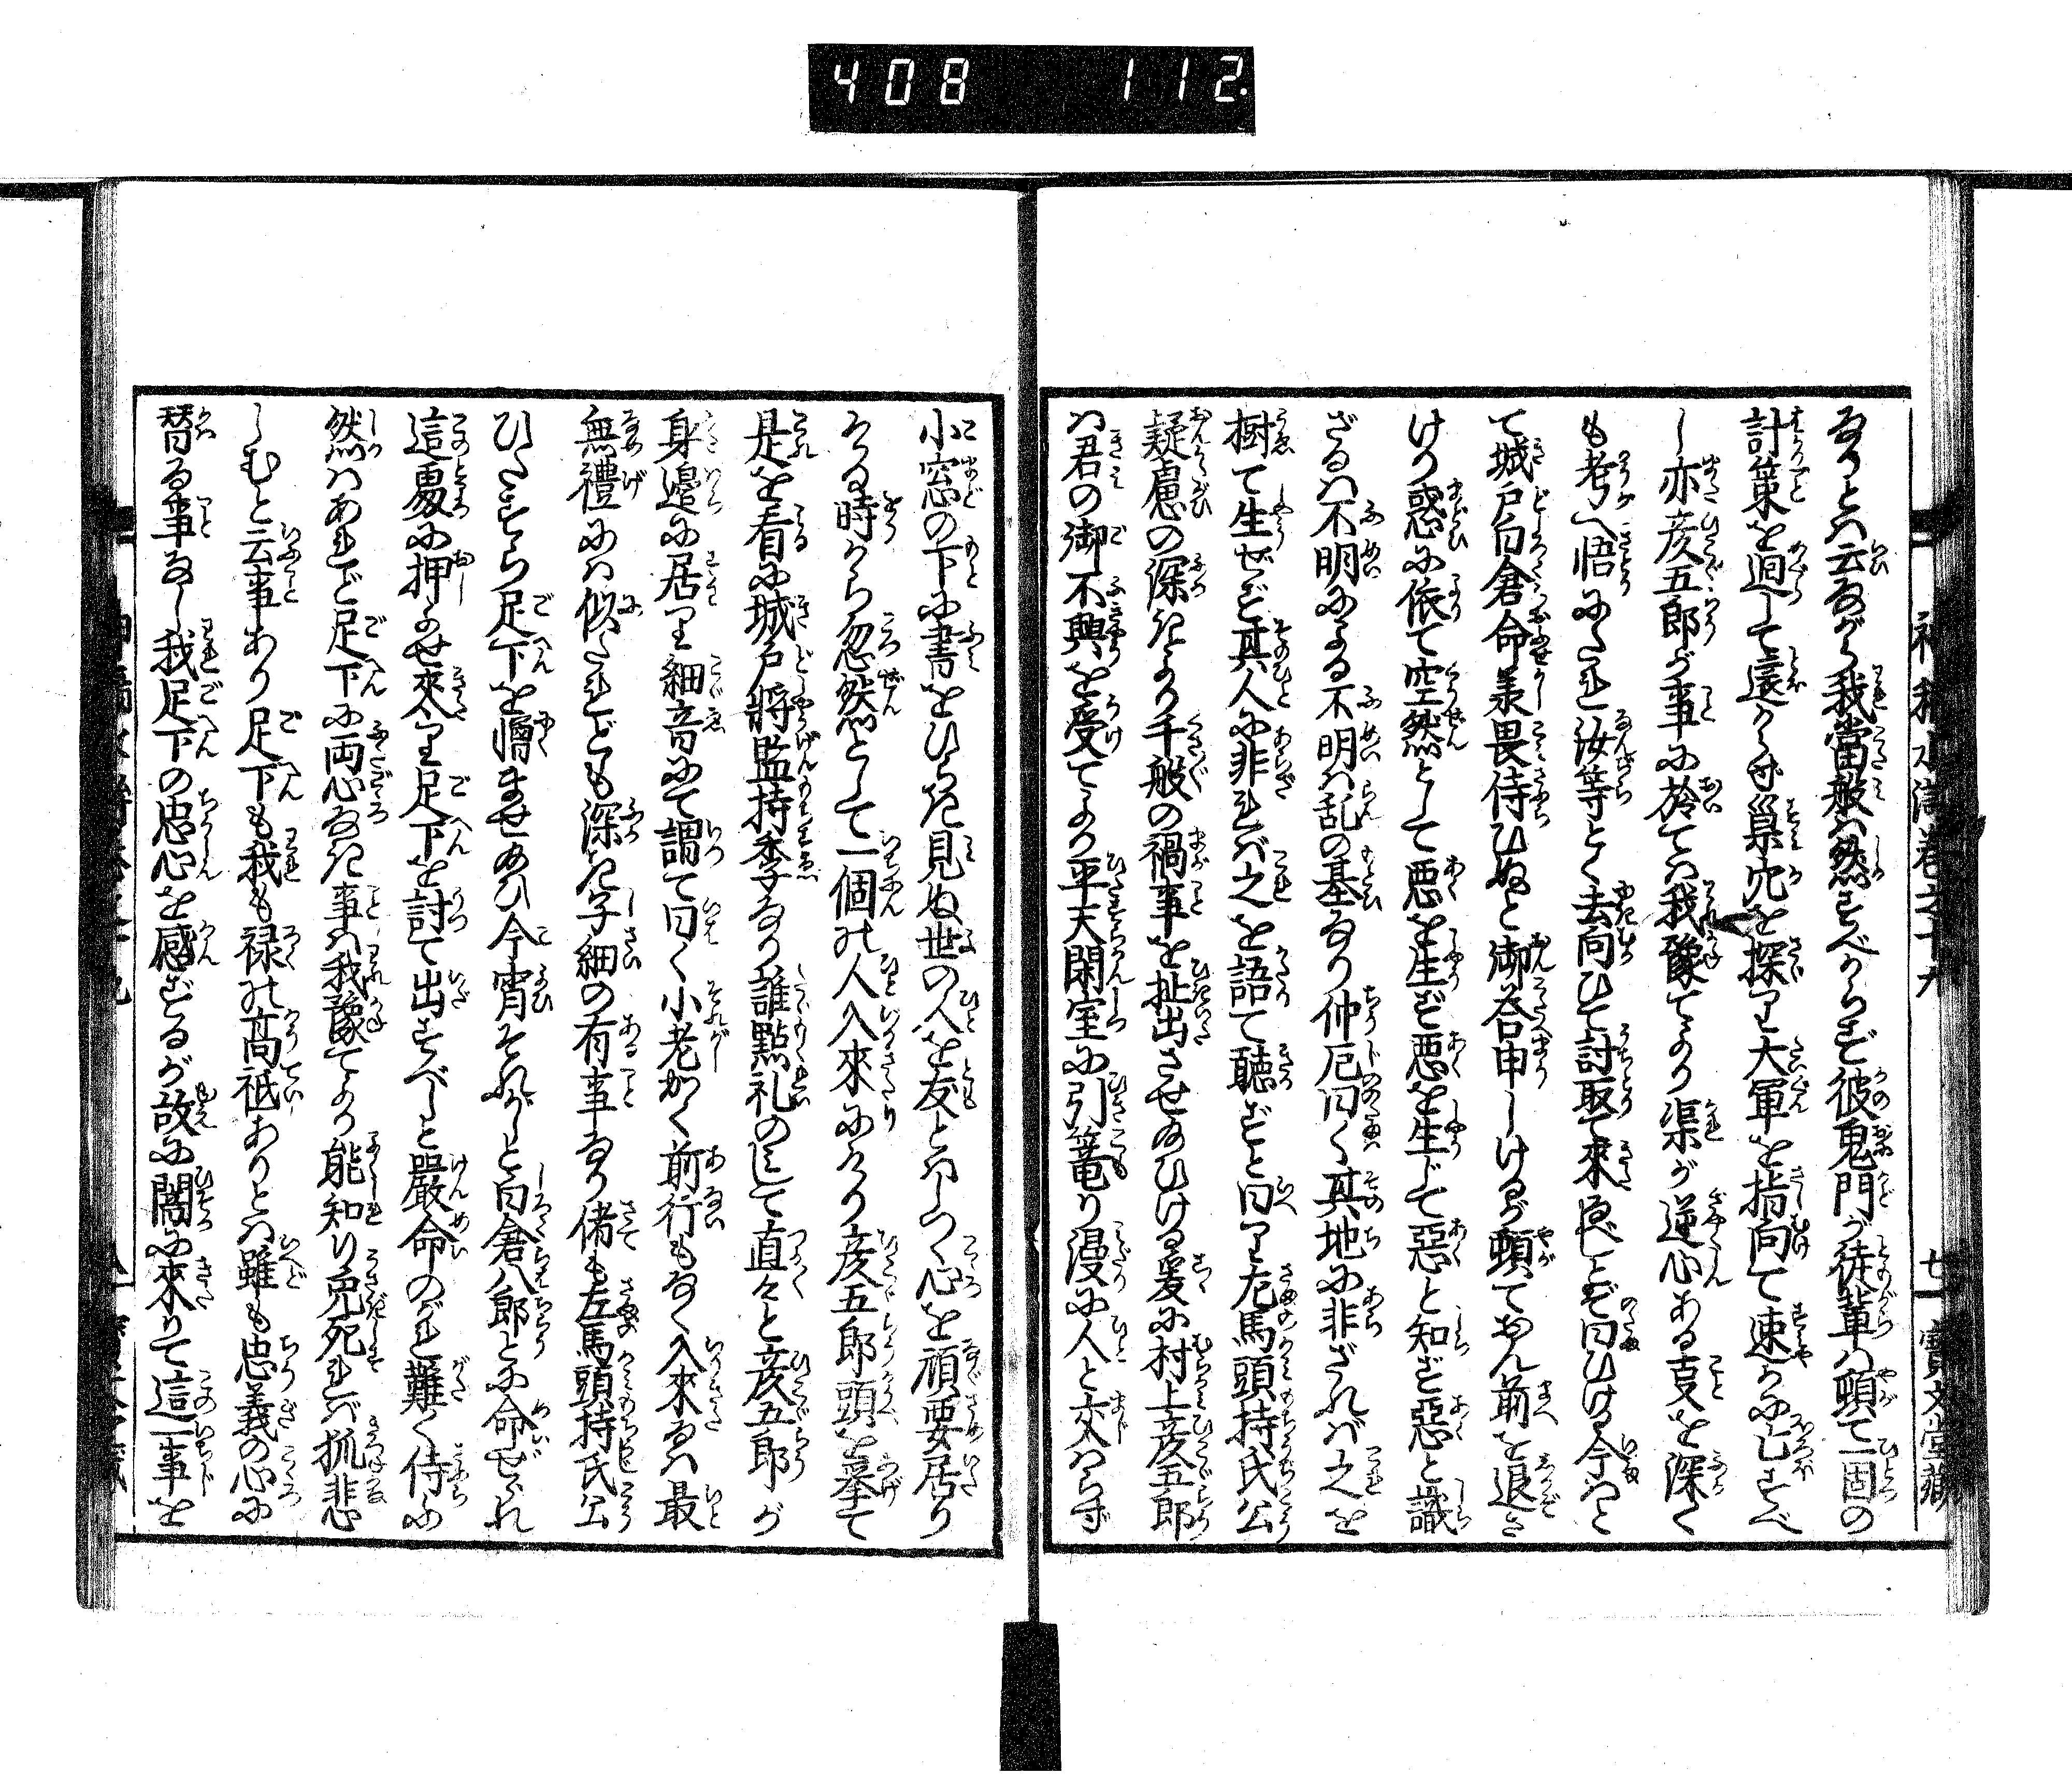 408 112
なりとハ云ながら我當般ハ然すべからず彼鬼門が徒輩ハ頓て一固の
計策を廻して遠からず巣穴を探り大軍を指向て速かに亡すべ
し亦彦五郎が事に於てハ我豫てより渠が逆心ある叓を深く
も考へ悟にたり汝等とく去向ひて討取て来るべしとぞ曰ひける今ハと
て城戸白倉命義畏侍ひぬと御答申しけるが頓ておん前を退さ
けり惑に依て空然として悪を生ぜど悪を生じて惡と知ざ惡と識
ざるハ不明による不明ハ乱の基なり仲尼曰く其地に非ざれバ之を
樹て生ぜど其人に非れバ之を語て聽ずと曰り左馬頭持氏公
疑慮の深きより千般の禍事を扯出させ給ひける爰に村上彦五郎
ハ君の御不興を受てより平天閑室に引篭り漫に人と交ハらず
小窓の下に書をひらき見ぬ世の人を友とハしつ心を頑要居り
ける時から忽然として一個の人入來にけり彦五郎頭を擧て
是を看に城戸將監持季なり誰點礼のして直々と彦五郎が
身邉に居り細音にて謂て曰く小老かく前行もなく入來るハ最
無禮にハ似たれども深き子細の有事なり偖も左馬頭持氏公
ひたすら足下を憎ませ給ひ今宵それがしと白倉八郎とに命ぜられ
這處に押よせ來り足下を討て出すべしと嚴命のがれ難く侍ふ
然ハあれど足下に両心なき事ハ我豫てより能知り兎死れバ狐悲
しむと云事あり足下も我も禄の高祗ありとハ雖も忠義の心に
替る事なし我足下の忠心を感ずるが故に闇に來りて這一事を